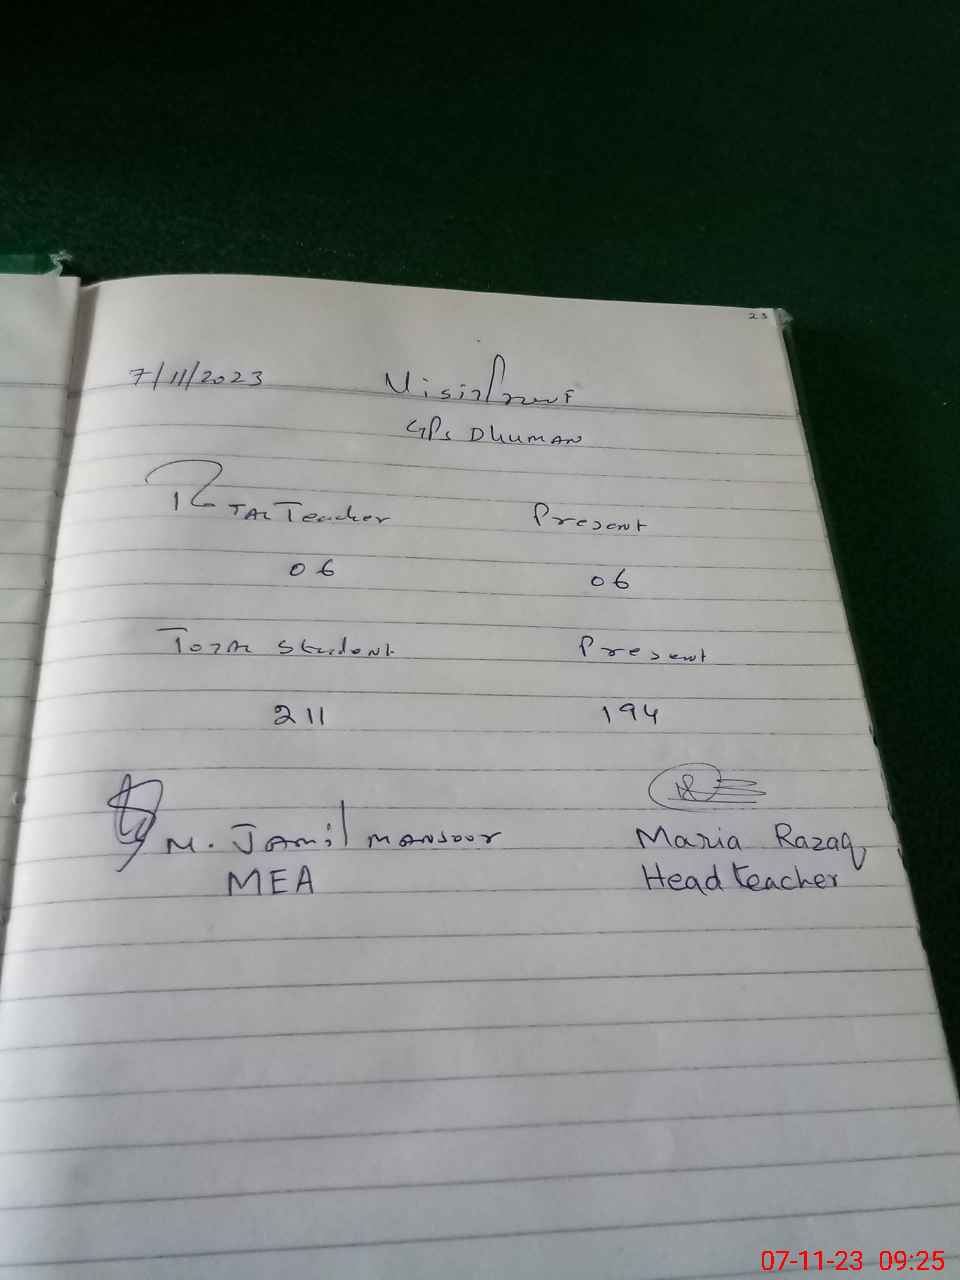 23
7/11/2023
GPS DHUMAN
Total Teacher Present
06 06
Total Student Present
211 194
M. Jamil Mansoor Maria Razaq
MEA Head teacher
07-11-23 09:25